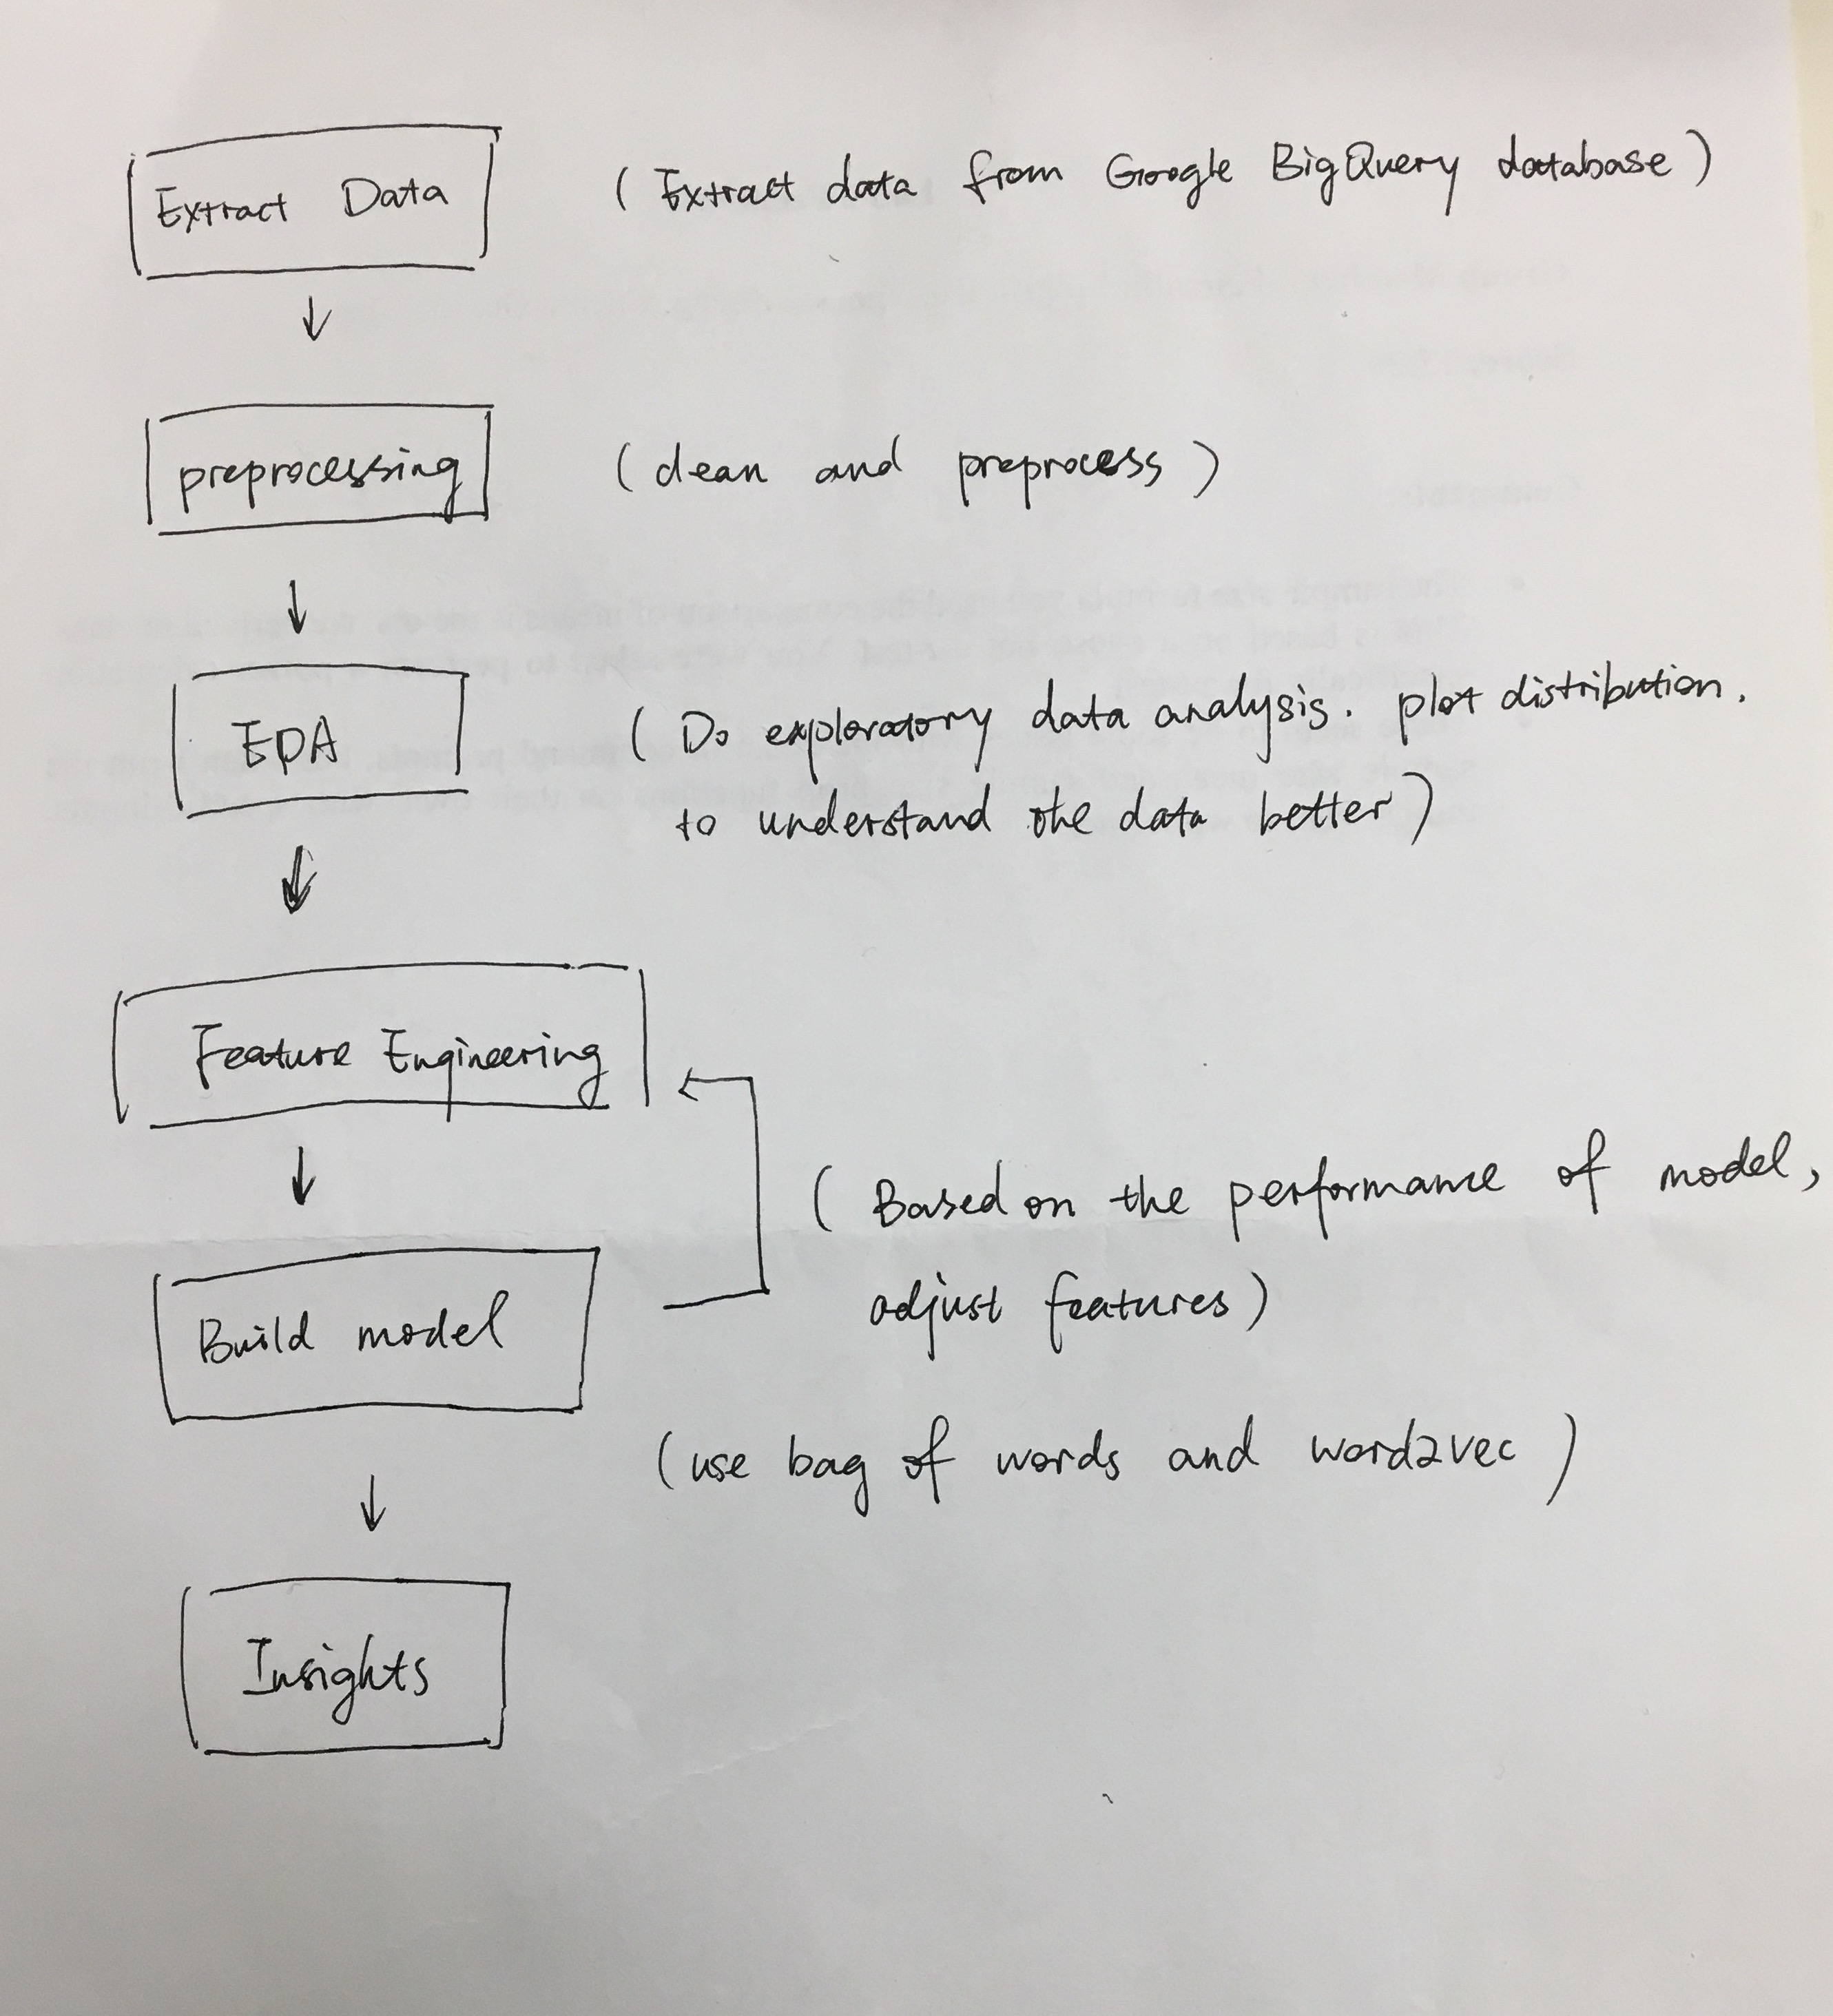 Extract Data (Extract data from Google BigQuery database)
preprocessing (clean and preprocess)
EDA (Do exploratory data analysis. plot distribution.
to understand the data better)
Feature Engineering
(Based on the performance of model,
adjust features)
Build model
(use bag of words and word2vec)
Insights